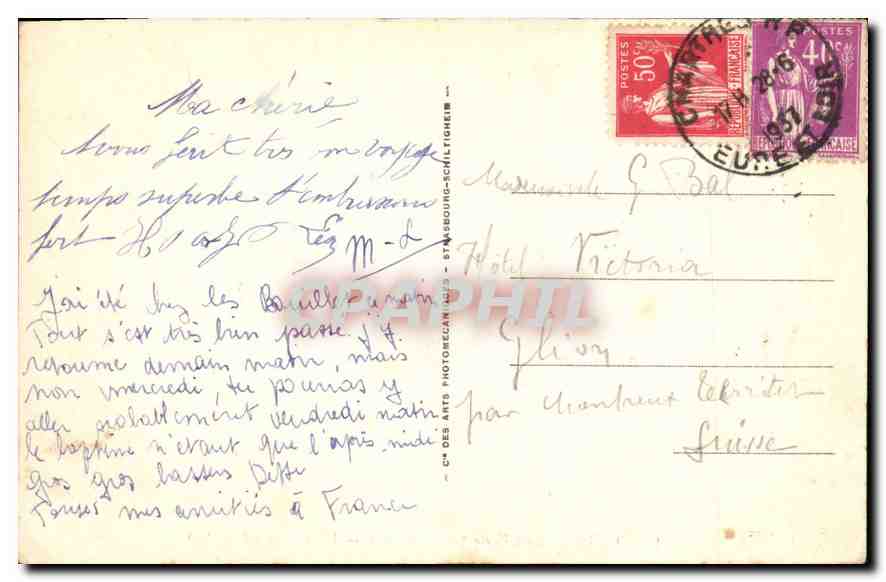 Ma chérie
Avons fait très bon voyage
temps superbe t'embrassons
fort
M-L
J'ai été chez les Bouillet ce matin
Tout s'est très bien passé. J'y
retourne demain matin, mais
non mercredi, tu pourras y
aller probablement vendredi matin
le baptême n'étant que l'après-midi
gros gros baisers
Toutes mes amitiés à France
Cie DES ARTS PHOTOMECANIQUES - STRASBOURG-SCHILTIGHEIM
CPAPHIL
POSTES
50c
REPUBLIQUE FRANÇAISE
POSTES
40c
REPUBLIQUE FRANÇAISE
CHARTRES
17H 28-6
1937
EURE ET LOIR
Mademoiselle G Bal
Hôtel Victoria
Glion
par Montreux Territet
Suisse